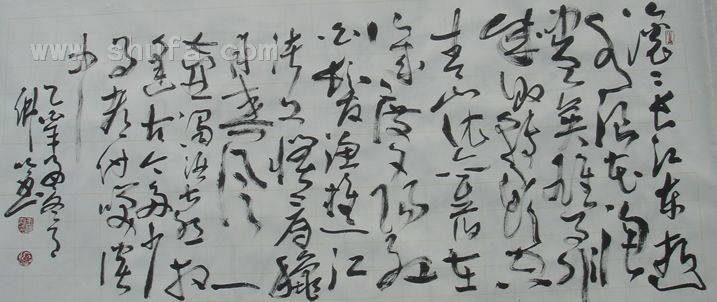 滚滚长江东逝
水浪花淘
尽英雄是非
成败转头空
青山依旧在
几度夕阳红
白发渔樵江
渚上惯看秋
月春风一
壶浊酒喜相
逢古今多少
事都付笑谈
中
www.shufa.com